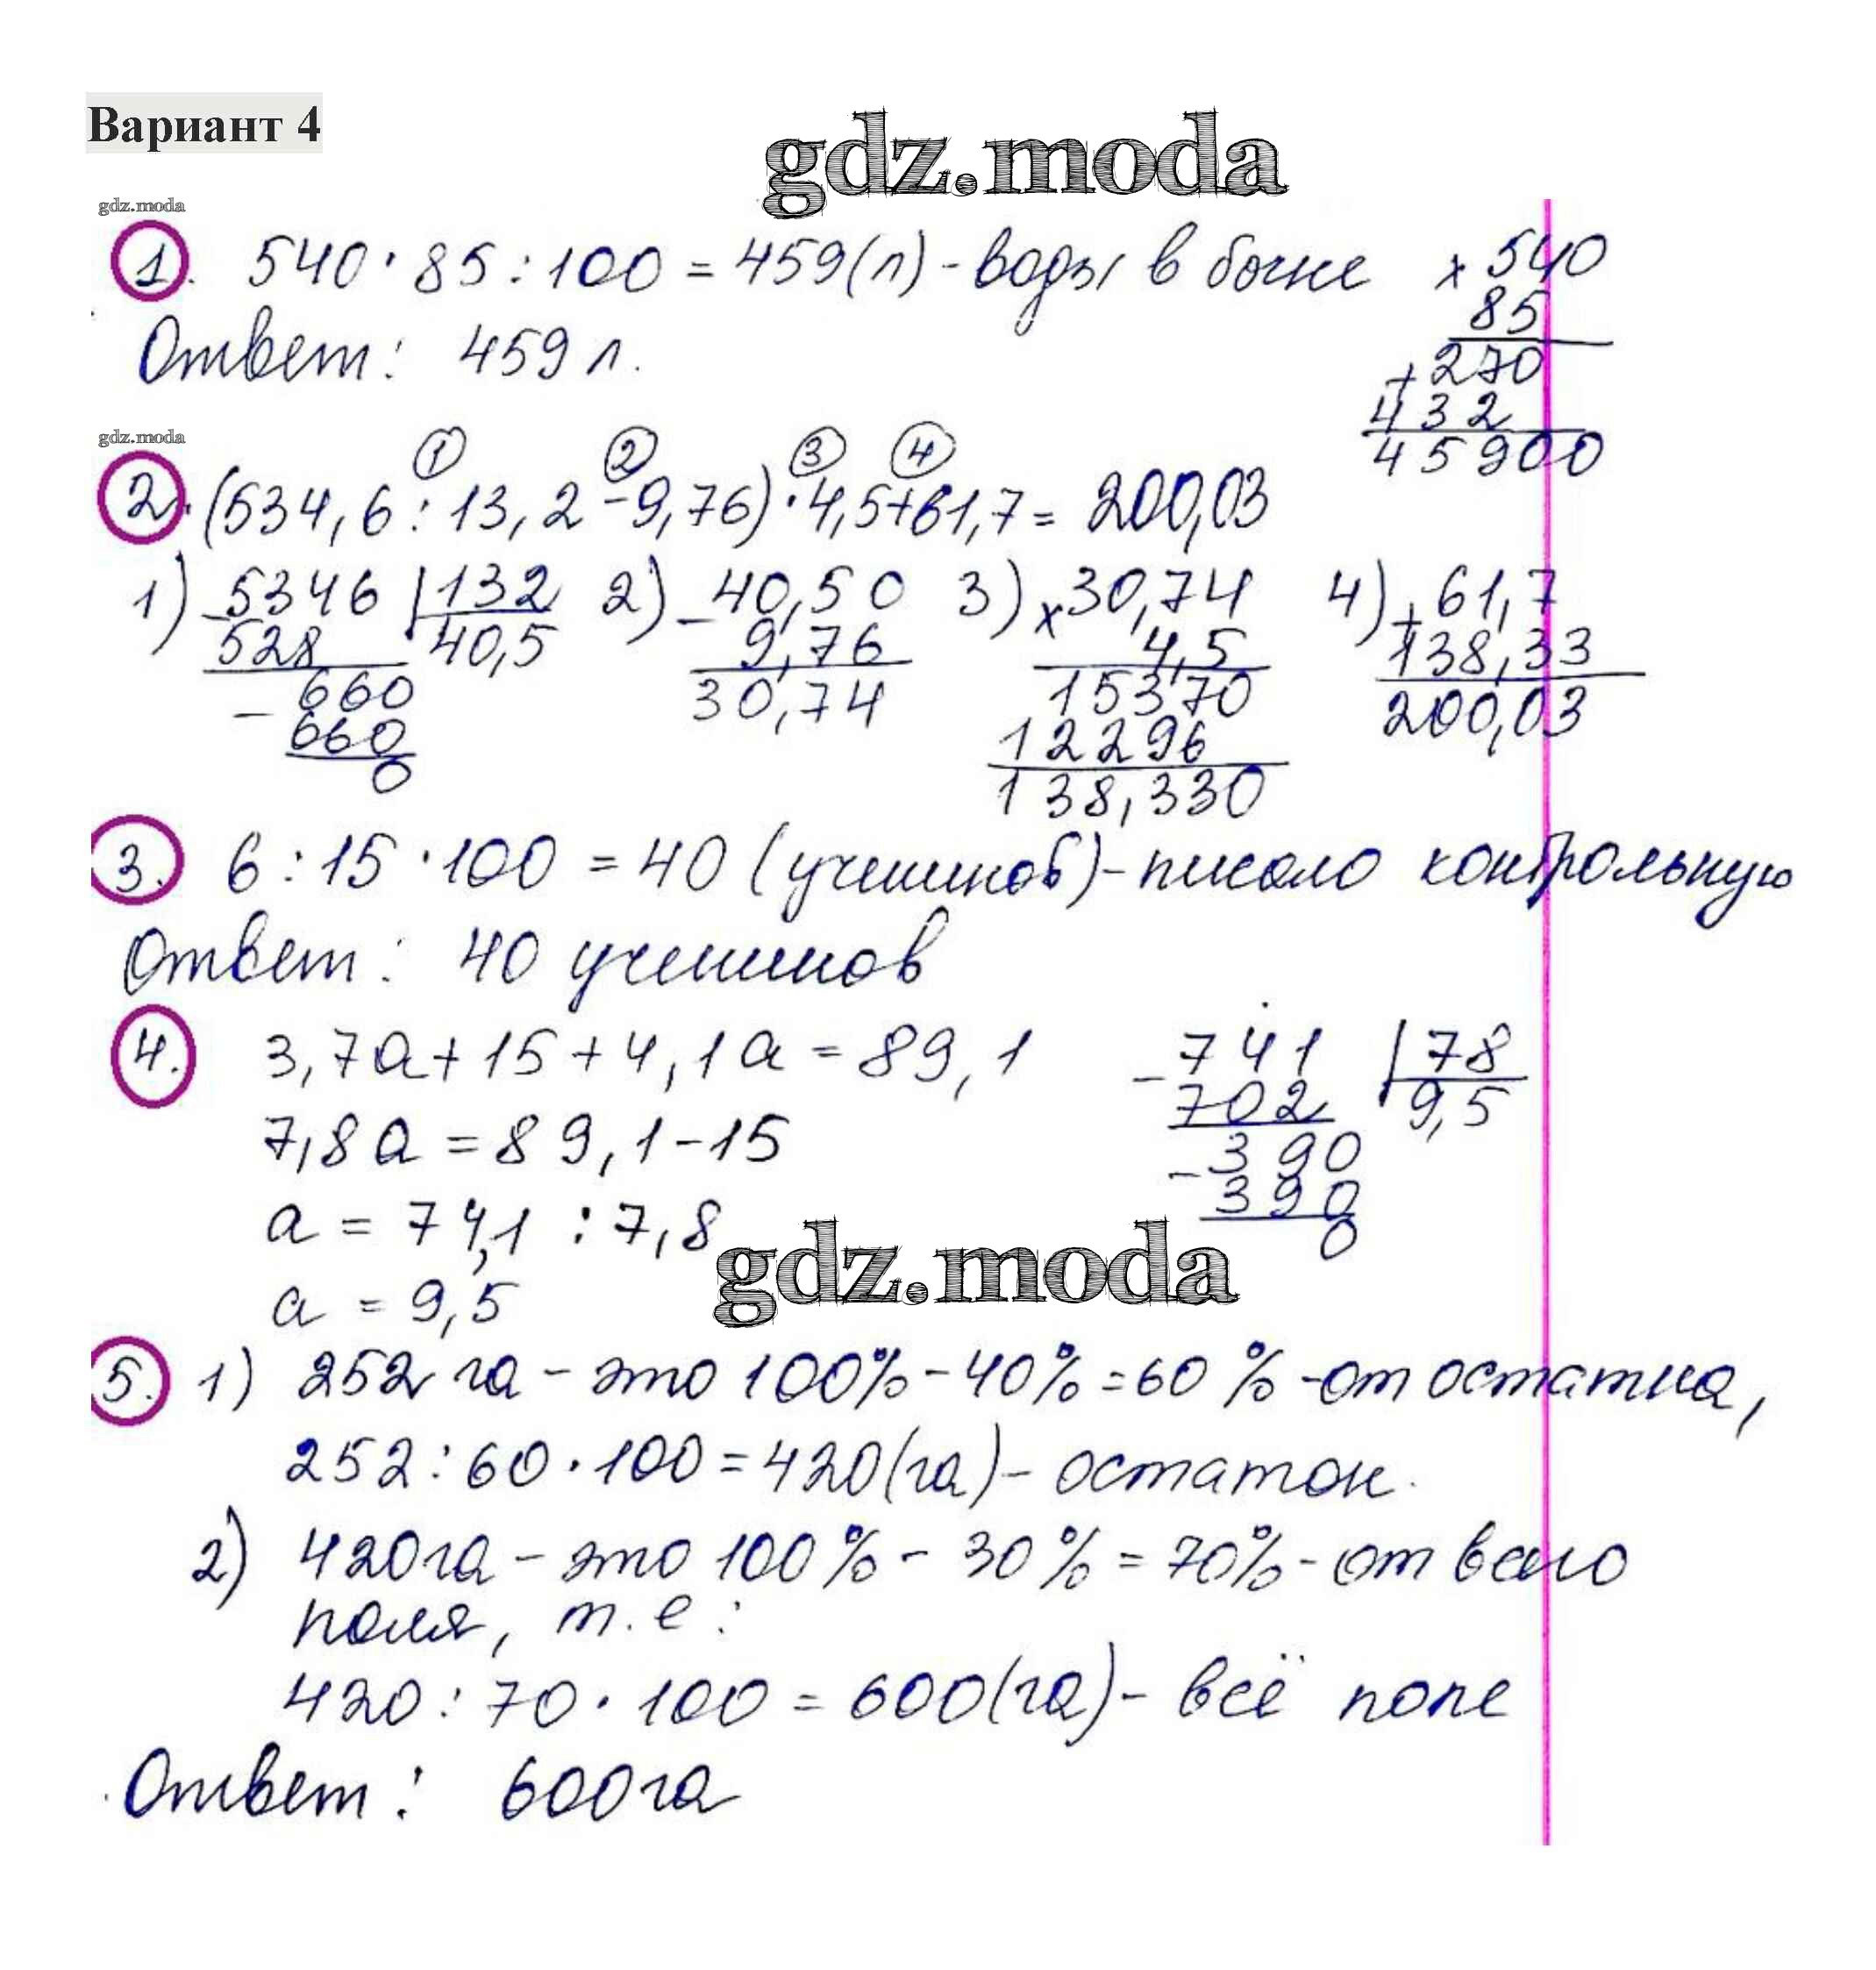 Вариант 4
gdz.moda
gdz.moda
1. 540 · 85 : 100 = 459(л) - воды в бочке
× 540
85
+ 270
432
45900
Ответ: 459 л.
gdz.moda
1 2 3 4
2. (534,6 : 13,2 - 9,76) · 4,5 + 61,7 = 200,03
1) - 5346 | 132
528 40,5
- 660
660
0
2) - 40,50
9,76
30,74
3) × 30,74
4,5
15370
12296
138,330
4) + 61,7
138,33
200,03
3. 6 : 15 · 100 = 40 (учеников) - писало контрольную
Ответ: 40 учеников
4. 3,7а + 15 + 4,1а = 89,1
7,8а = 89,1 - 15
а = 74,1 : 7,8
а = 9,5
- 741 | 78
702 9,5
- 390
390
0
gdz.moda
5. 1) 252 га - это 100% - 40% = 60% - от остатка,
252 : 60 · 100 = 420(га) - остаток.
2) 420га - это 100% - 30% = 70% - от всего
поля, т.е :
420 : 70 · 100 = 600(га) - всё поле
Ответ: 600га